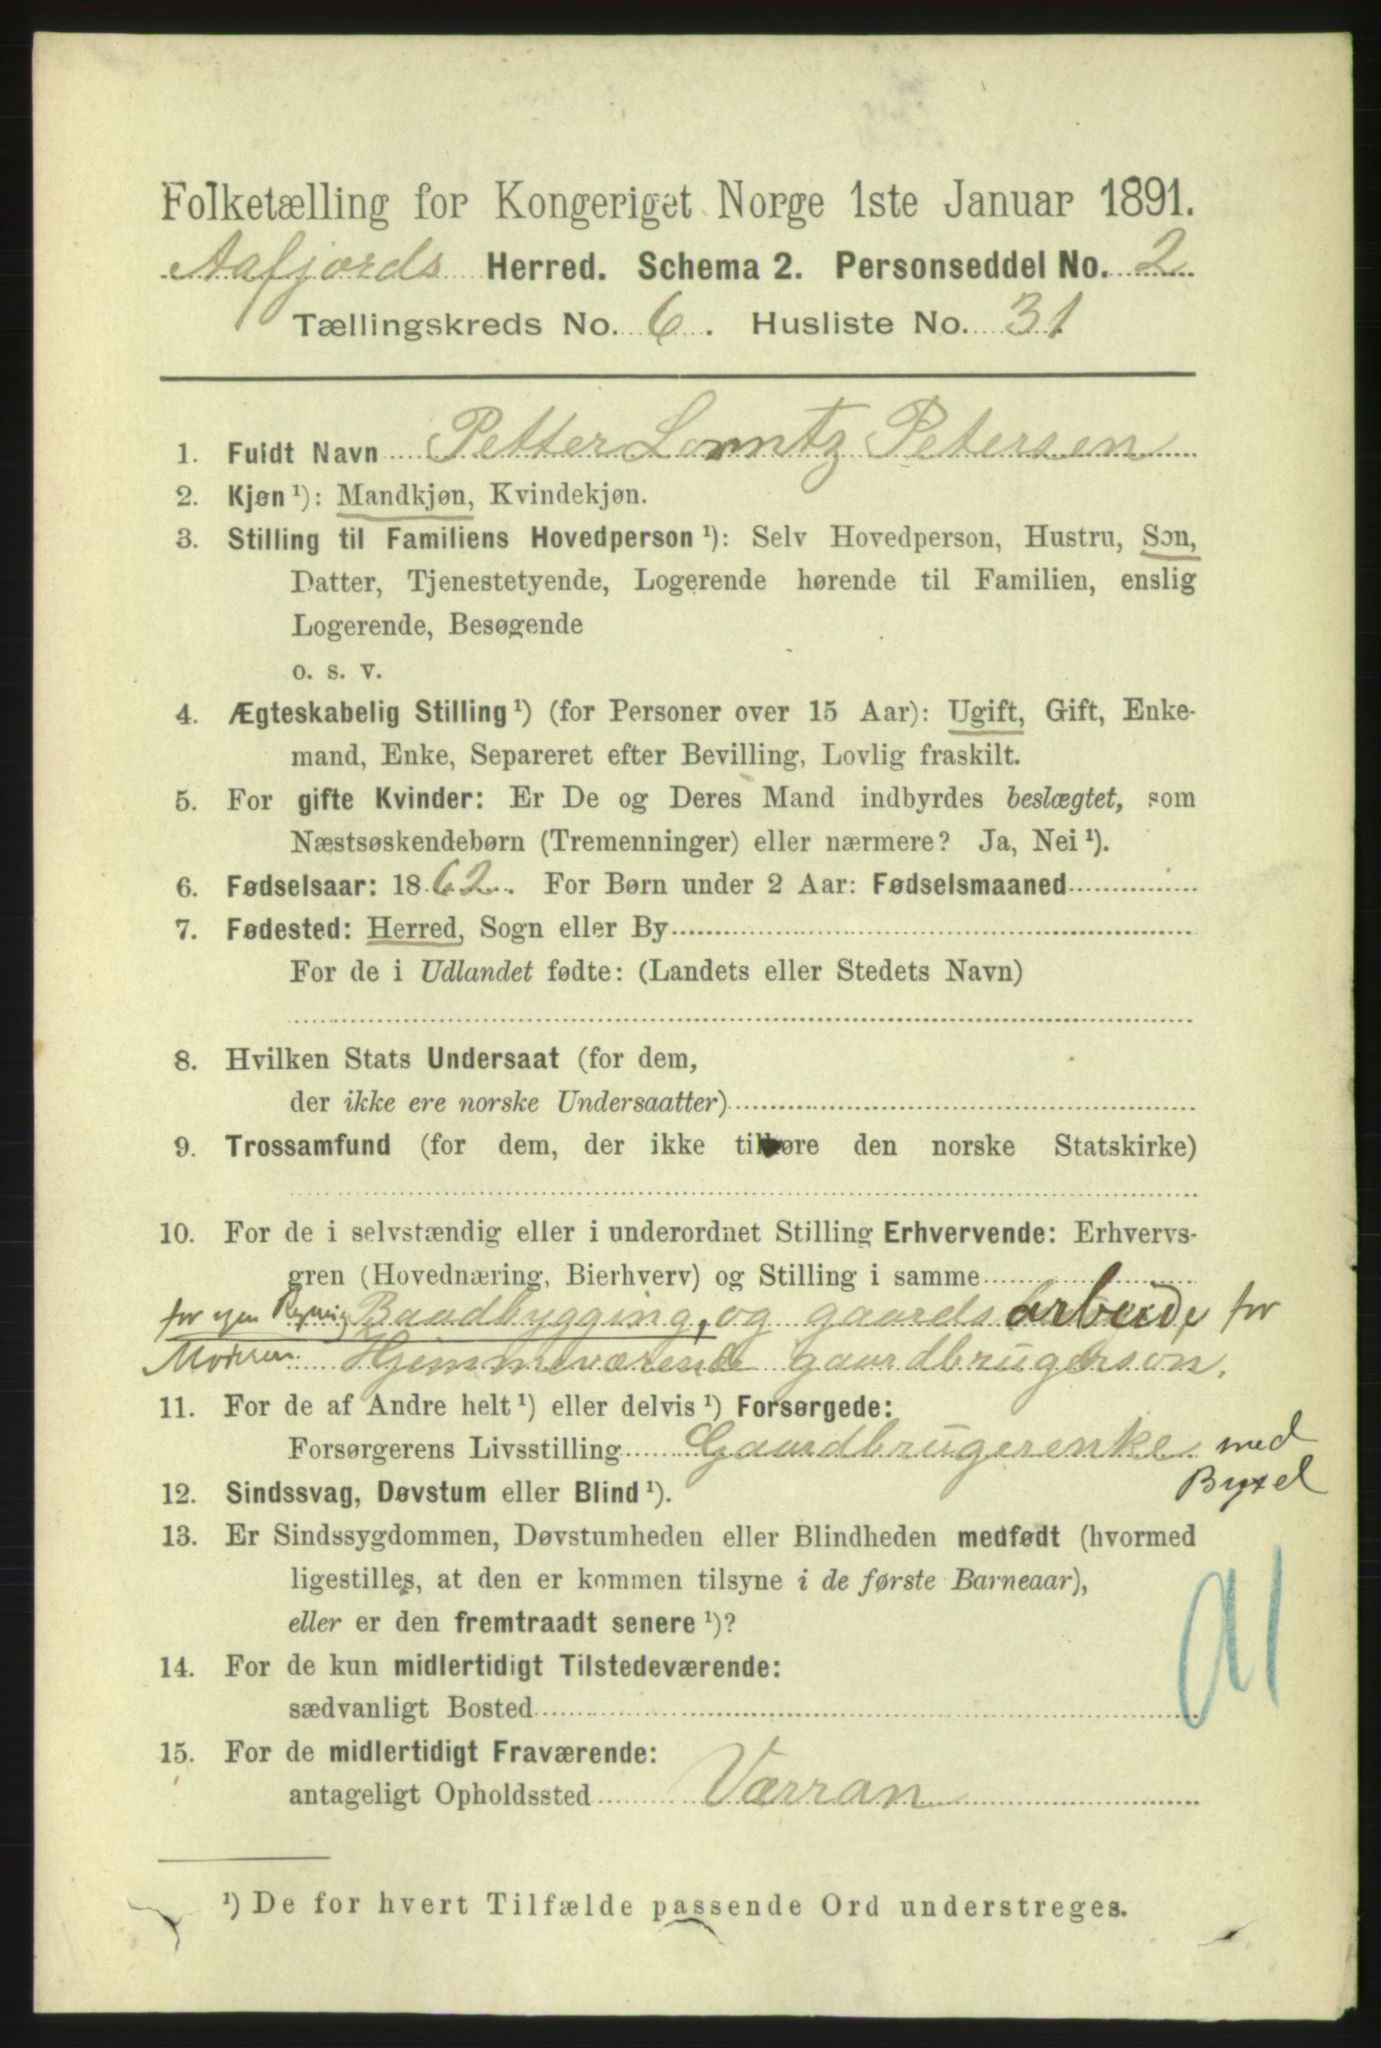 Folketælling for Kongeriget Norge 1ste Januar 1891.
Aafjords Herred. Schema 2. Personseddel No. 2
Tællingskreds No. 6. Husliste No. 31
1. Fuldt Navn Petter Lorntz Petersen
2. Kjøn ¹): Mandkjøn, Kvindekjøn.
3. Stilling til Familiens Hovedperson ¹): Selv Hovedperson, Hustru, Søn,
Datter, Tjenestetyende, Logerende hørende til Familien, enslig
Logerende, Besøgende
o. s. v.
4. Ægteskabelig Stilling ¹) (for Personer over 15 Aar): Ugift, Gift, Enke-
mand, Enke, Separeret efter Bevilling, Lovlig fraskilt.
5. For gifte Kvinder: Er De og Deres Mand indbyrdes beslægtet, som
Næstsøskendebørn (Tremenninger) eller nærmere? Ja, Nei ¹).
6. Fødselsaar: 1862. For Børn under 2 Aar: Fødselsmaaned
7. Fødested: Herred, Sogn eller By
For de i Udlandet fødte: (Landets eller Stedets Navn)
8. Hvilken Stats Undersaat (for dem,
der ikke ere norske Undersaatter)
9. Trossamfund (for dem, der ikke tilhøre den norske Statskirke)
10. For de i selvstændig eller i underordnet Stilling Erhvervende: Erhvervs-
gren (Hovednæring, Bierhverv) og Stilling i samme
for egen Regning Baadbygging, og gaardsarbeide for
Moderen. Hjemmeværende gaardbrugerson.
11. For de af Andre helt ¹) eller delvis ¹) Forsørgede:
Forsørgerens Livsstilling Gaardbrugerenke med
Byxel
12. Sindssvag, Døvstum eller Blind ¹).
13. Er Sindssygdommen, Døvstumheden eller Blindheden medfødt (hvormed
ligestilles, at den er kommen tilsyne i de første Barneaar),
eller er den fremtraadt senere ¹)?
14. For de kun midlertidigt Tilstedeværende:
sædvanligt Bosted
15. For de midlertidigt Fraværende:
antageligt Opholdssted Værran
¹) De for hvert Tilfælde passende Ord understreges.